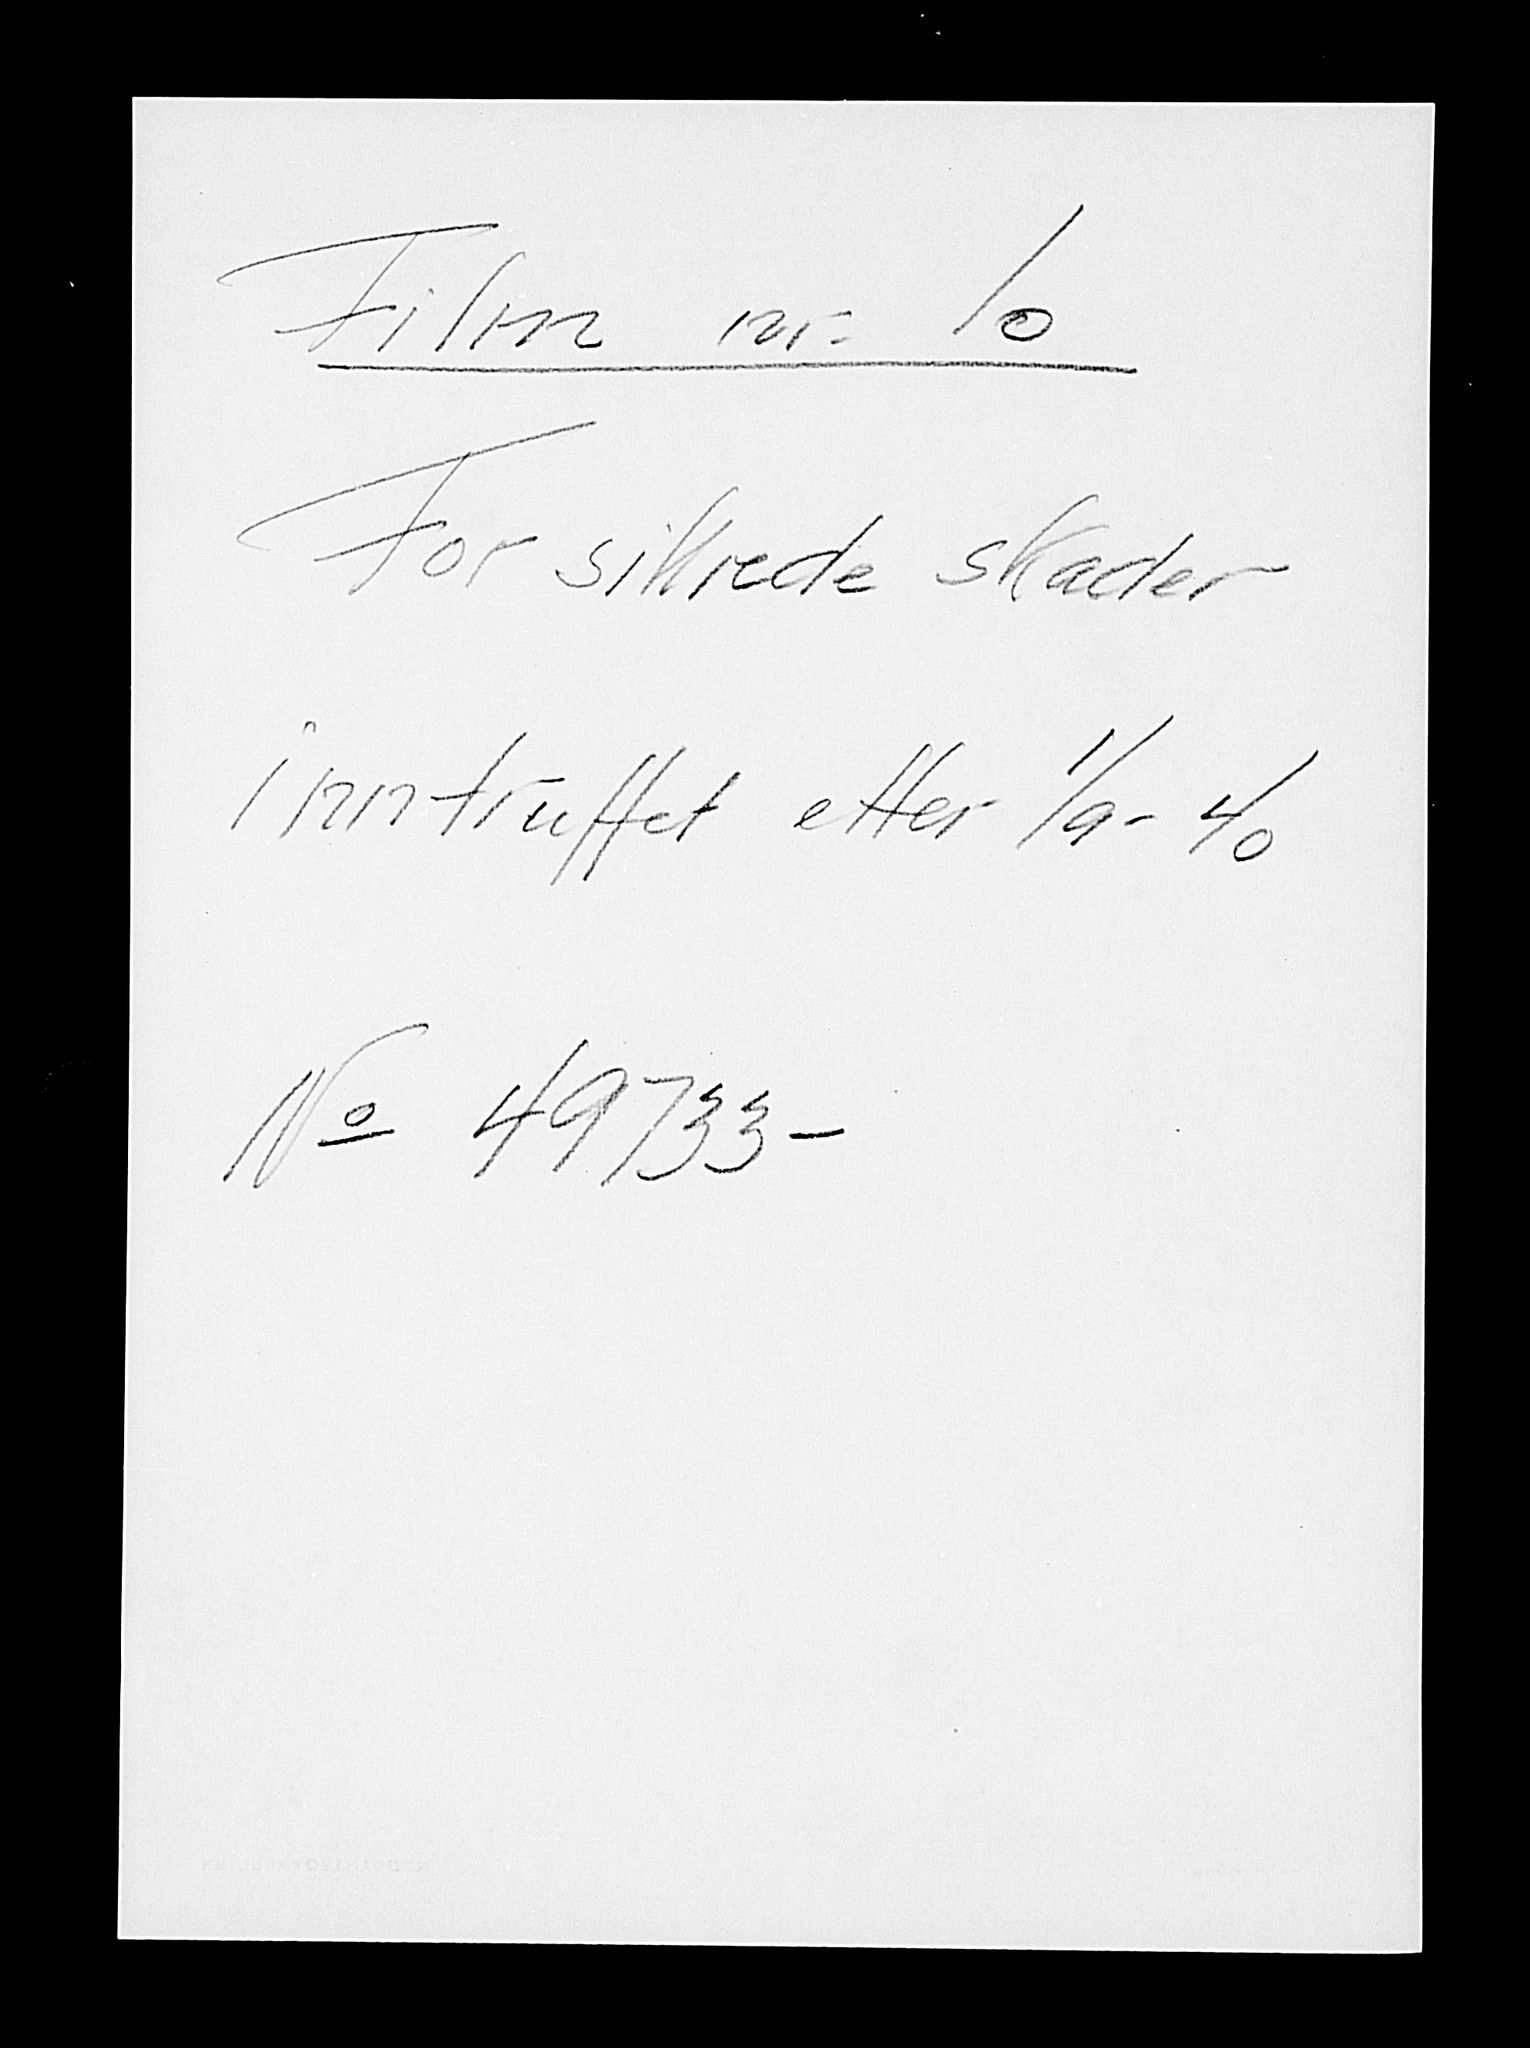 Film nr. 10
For sikrede skader
inntruffet etter 1/9-40
No 49733-